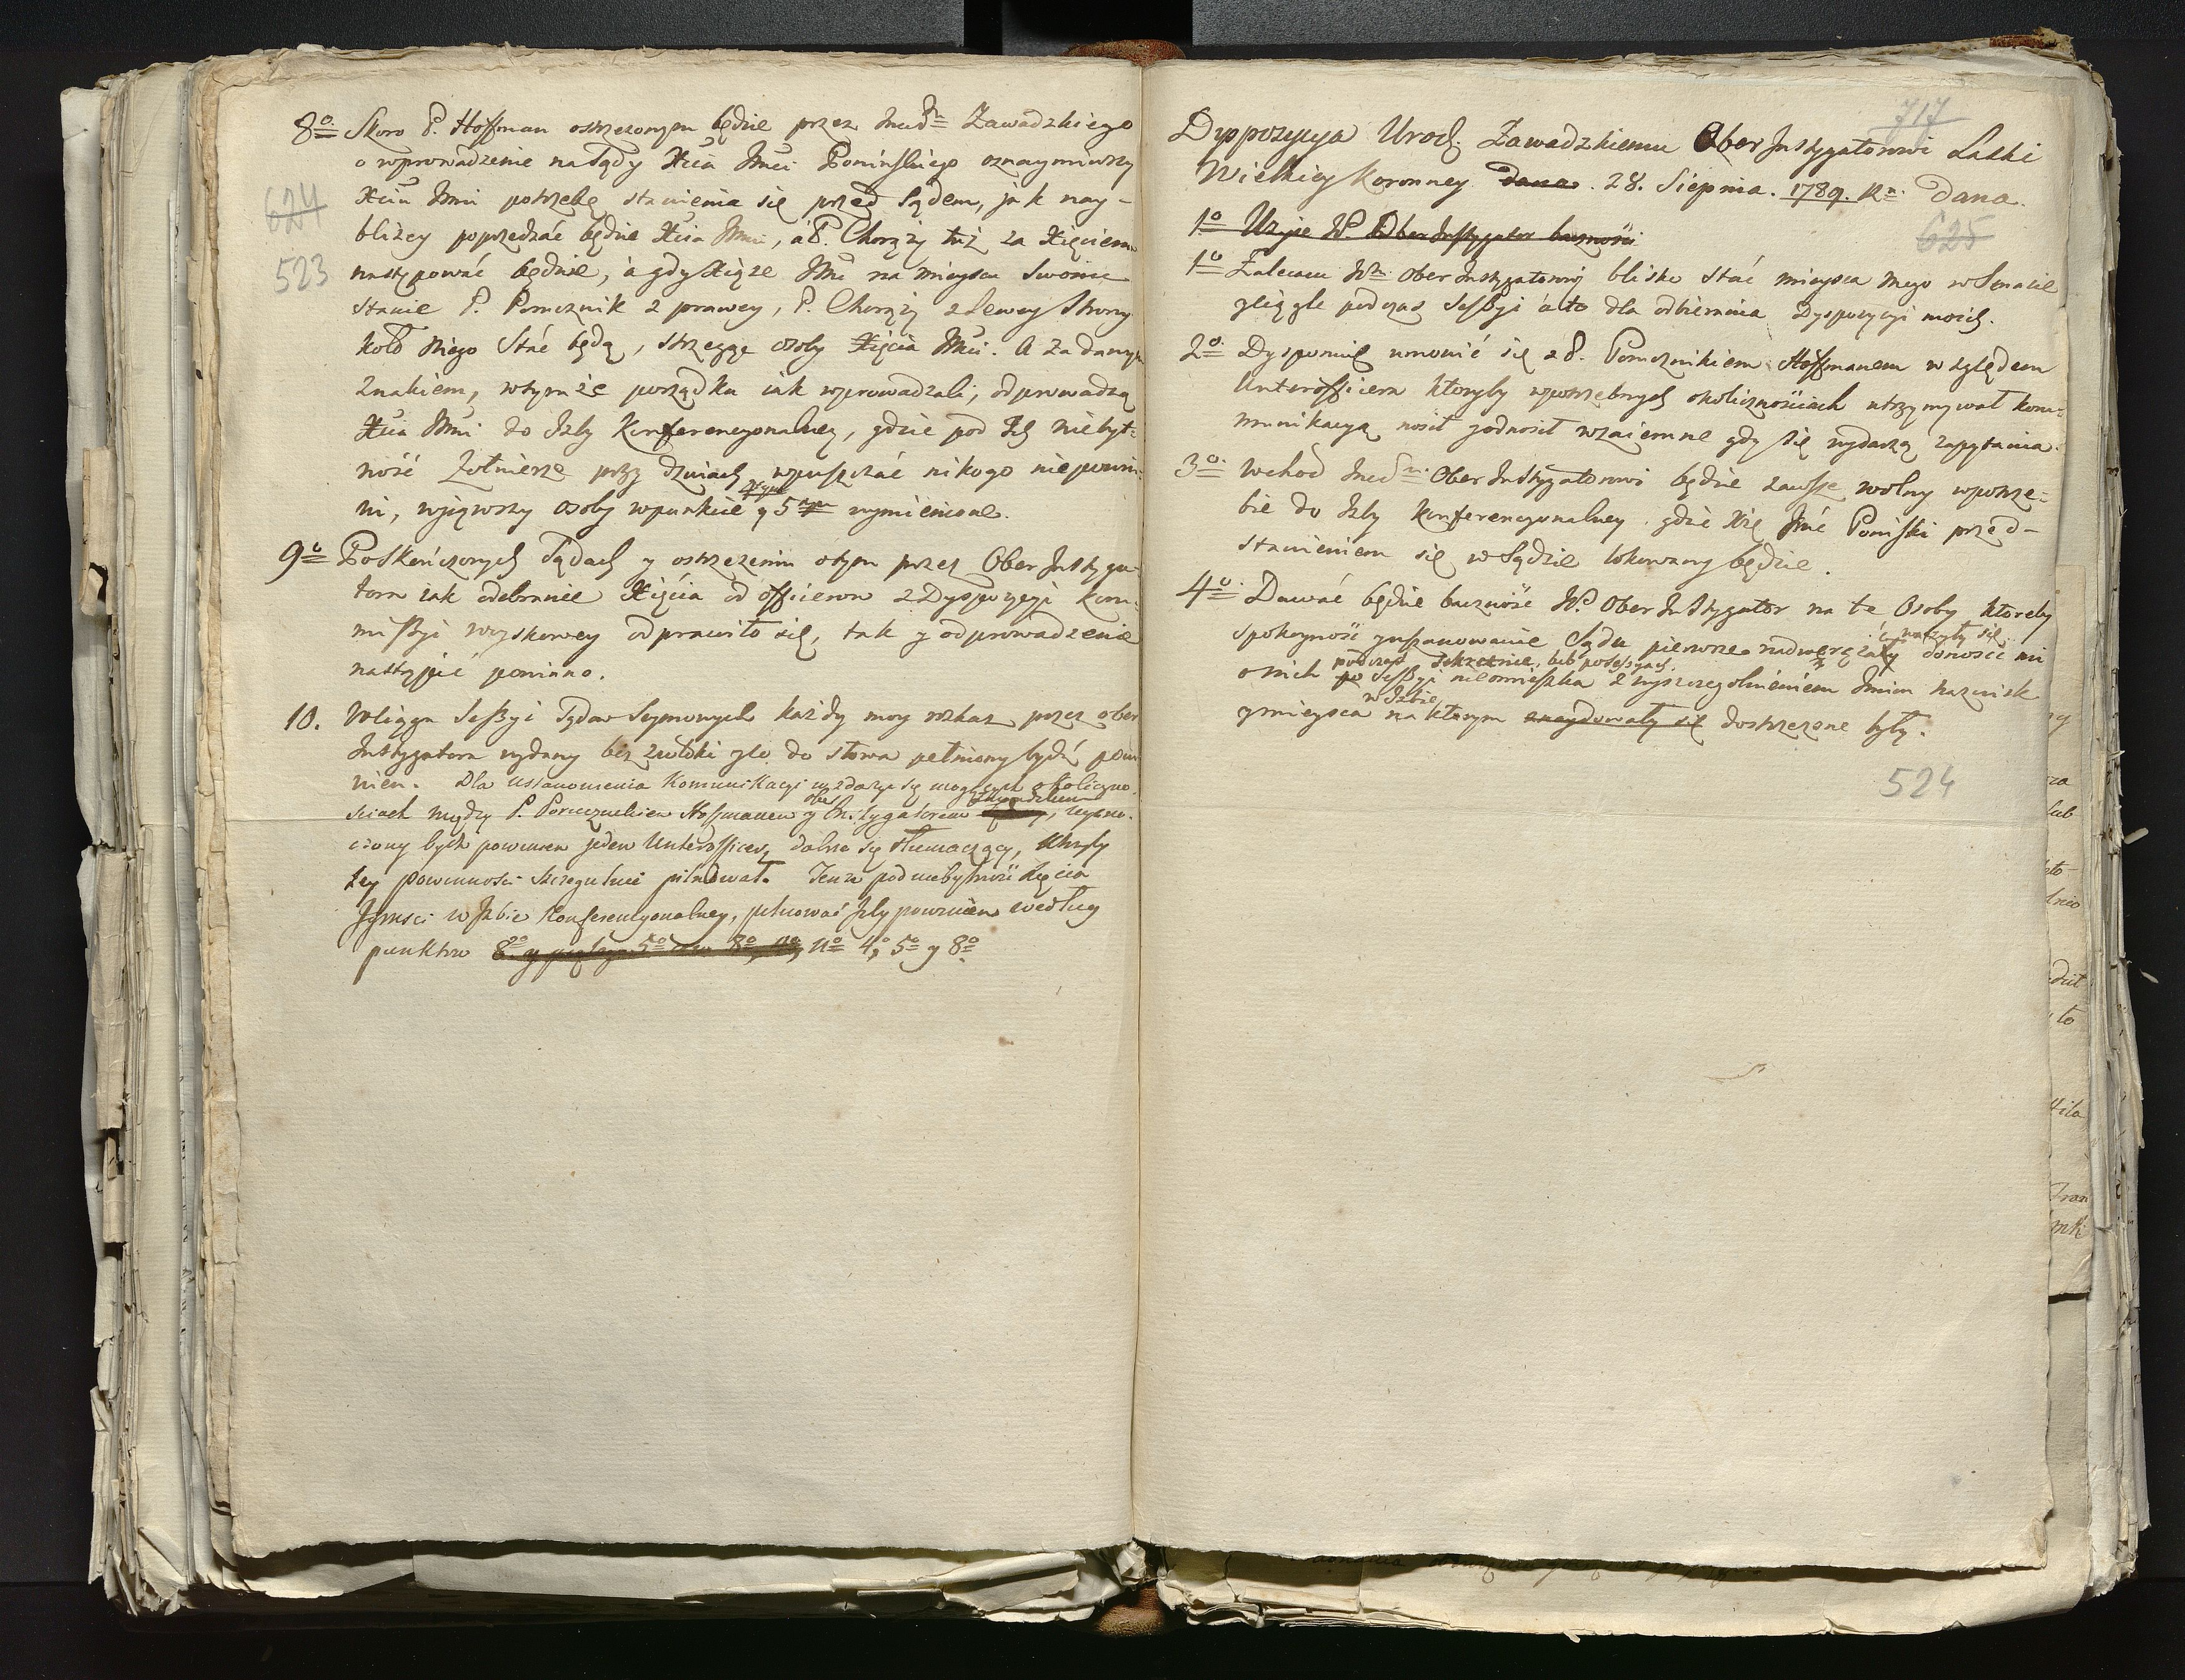 624
523
8o Skoro P. Hoffman ostrzezonym będzie przez Zawadzkiego
o wprowadzenie na Sądy Xcia Jmci Ponińskiego oznaymiwszy
Xciu Jmci potrzebę stawienia się przed Sądem, jak nay-
bliżey poprzedzać będzie Xcia Jmci, á P. Chorąży tuż za Xięciem
następować będzie, á gdy Xiąze Jmć na mieyscu Swoim
stanie P. Porucznik z prawey, P. Chorąży z lewey strony
koło Niego Stać będą, strzegąc osoby Xięcia Jmci. A za danym
Znakiem, w tymże porządku iak wprowadzali, odprowadzą
Xcia Jmci do Izby Konferencyonalney, gdzie pod Ich niebyt=
ność Żołnierze przy drzwiach wpuszczać nikogo niepowin=
ni, wyiąwszy osoby w punkcie 4tym y 5tym wymienione.
9o Po Skończonych Sądach y ostrzezeniu o tym przez Ober Instyga-
tora iak odebranie Xięcia od officerow z Dyspozycyi Kom=
missyi woyskowey odprawiło się, tak y odprowadzenie
nastąpić powinno.
10. W ciągu Sessyi Sądow Seymowych każdy moy rozkaz przez ober
Instygatora wydany bez zwłoki y co do słowa pełniony bydź powi
nien. Dla ustanowienia Kommunikacyi w zdarzyć się mogących okoliczno=
sciach między P. Porucznikiem Hoffmanem y ober Instygatorem Zawadzkim, wyzna=
czony bydź powinien jeden Unterofficer, dobrze się tłumaczący, któryby
tey powinności szczegulnie pilnował. Tenze pod niebytność Xięcia
Jmsci w Izbie Konferencyonalney, pilnować Izby powinien według
punktow No 4o, 5o y 8o
717
625
Dyspozycya Urodz. Zawadzkiemu Ober Instygatorowi Laski
Wielkiey Koronney dana. 28. Sierpnia. 1789. Rn. Dana.
1o Użyie W. Ober Instygator baczności
1o Zalecam Wmu Ober Instygatorowi blisko Stać mieysca mego w Senacie
y ciągle podczas Sessyi á to dla odbierania Dyspozycyi moich.
2o Dysponuię umowić się z P. Porucznikiem Hoffmanem względem
Unterofficera ktoryby w potrzebnych okolicznościach utrzymywał kom=
munikacyą nosił y odnosił wzaiemne gdy się wydarzą zapytania.
3o Wchod Ober Instygatorowi będzie zawsze wolny w potrze=
bie do Izby Konferencyonalney gdzie Xżę Jmć Poniński przed-
stawieniem się w Sądzie lokowany będzie.
4o Dawać będzie baczność W. Ober Instygator na te Osoby ktoreby
spokoyność y uszanowanie Sądu pierwsze nadwerężały donosić mi
o nich podczas po Sessyi nieomieszka z wyszczegolnieniem Imion nazwisk
y mieysca w Izbie na ktorym znaydowały się dostrzezone były.
524